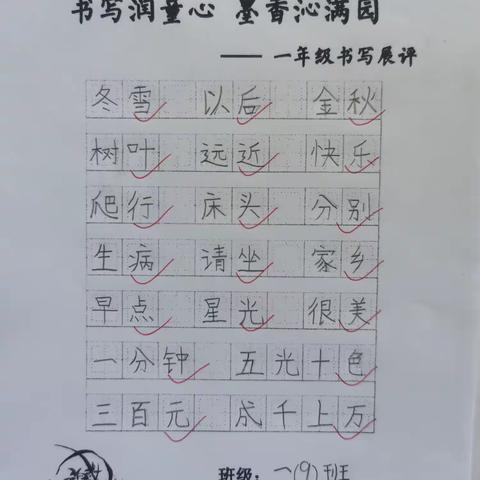 书写润童心 墨香沁满园
—— 一年级书写展评
冬雪 以后 金秋
树叶 远近 快乐
爬行 床头 分别
生病 请坐 家乡
早点 星光 很美
一分钟 五光十色
三百元 成千上万
班级：一(9)班